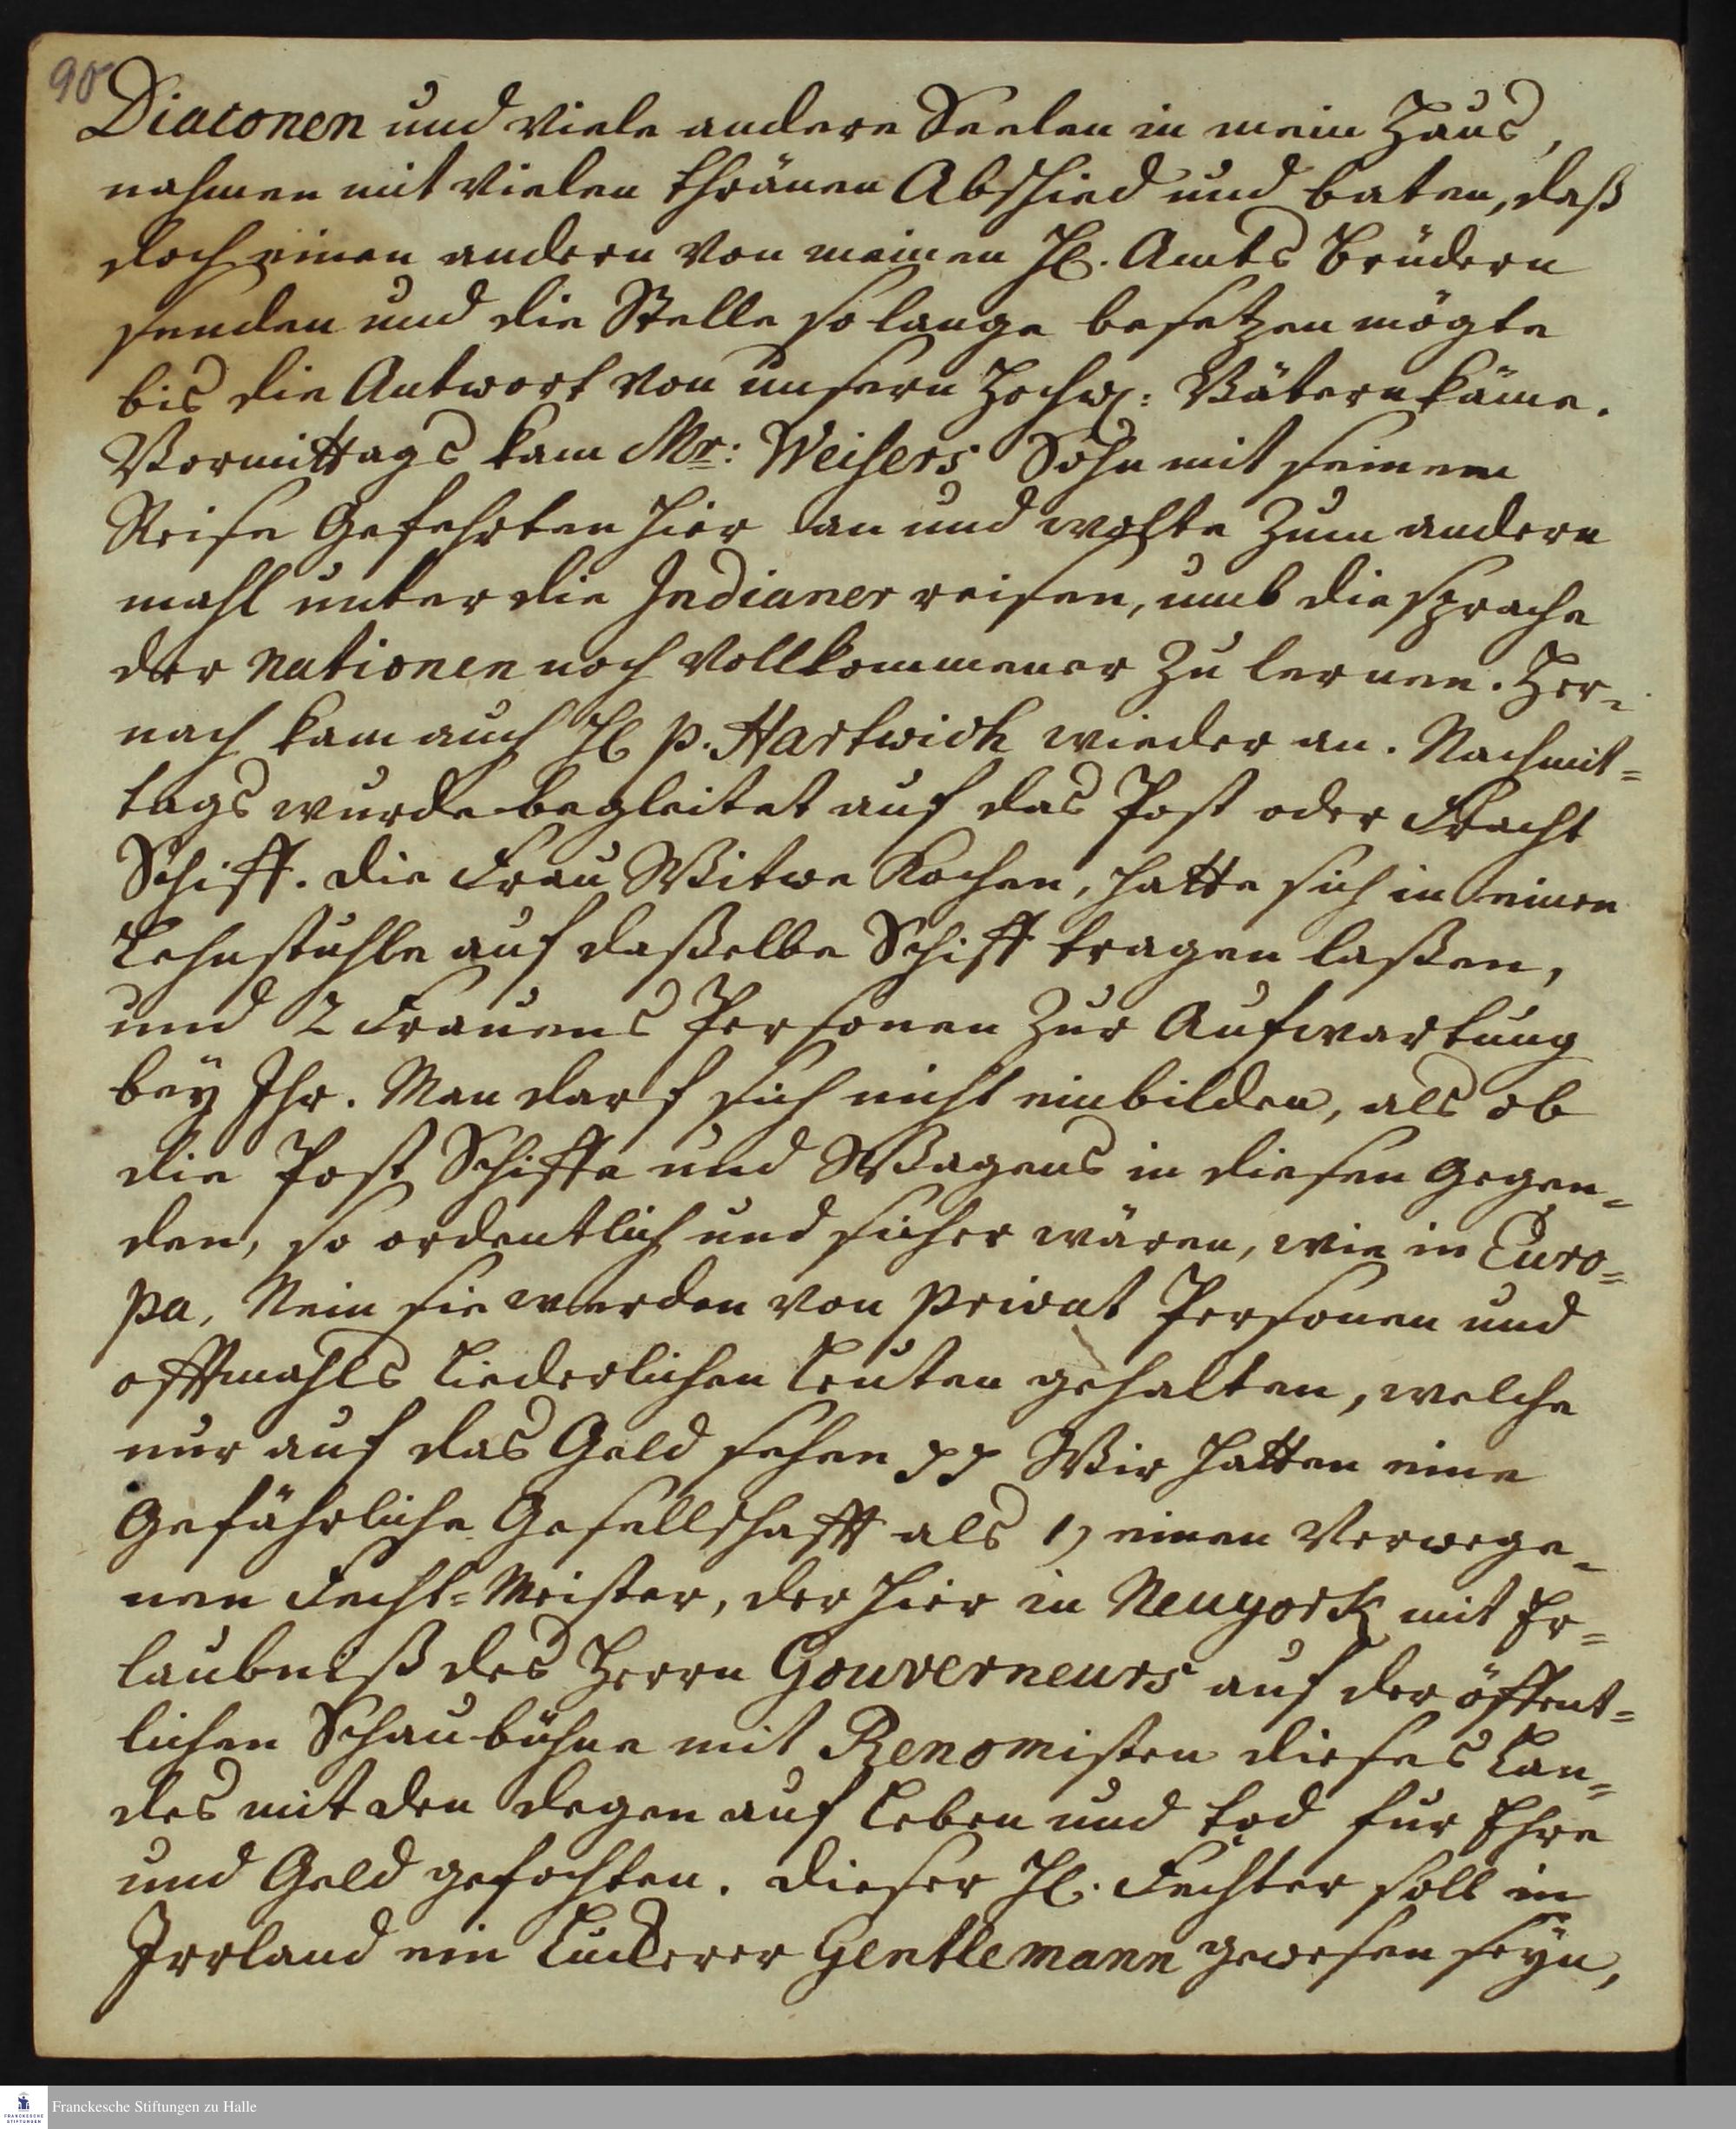 90
Diaconen und viele andere Seelen in mein Haus,
nahmen mit vielen thränen Abschied und baten, daß
doch einen andern von meinen H. Amts Brüdern
senden und die Stelle so lange besetzen mögte
bis die Antwort von unsern Hochw: Vätern käme.
Vormittags kam Mr: Weisers Sohn mit seinem
Reise Gefehrten hier an und wolte zum andern
mahl unter die Indianer reisen, umb die sprache
der Nationen noch vollkommener zu lernen. Her-
nach kam auch H P. Hartwich wieder an. Nachmit=
tags wurde begleitet auf das Post oder Fracht
Schiff. Die Frau Witwe Kochen, hatte sich in einen
Lehnstuhle auf daßelbe Schiff tragen laßen,
und 2 Frauens Personen zur Aufwartung
bey Ihr. Man darf sich nicht einbilden, als ob
die Post Schiffe und Wagens in diesen Gegen=
den, so ordentlich und sicher wären, wie in Euro=
pa, Nein sie werden von privat Personen und
offtmahls Liederlichen Leuten gehalten, welche
nur auf das Geld sehen pp Wir hatten eine
Gefährliche Gesellschafft als 1) einen Verwege-
nen Fecht=Meister, der hier in Neuyork mit Er=
laubniß des Herrn Gouverneurs auf der öffent=
lichen Schaubühne mit Renomisten dieses Lan=
des mit den degen auf Leben und tod fur Ehre
und Geld gefochten. Dieser H. Fechter soll in
Irrland ein Luderer Gentlemann gewesen seyn,
FRANCKESCHE
STIFTUNGEN
Franckesche Stiftungen zu Halle